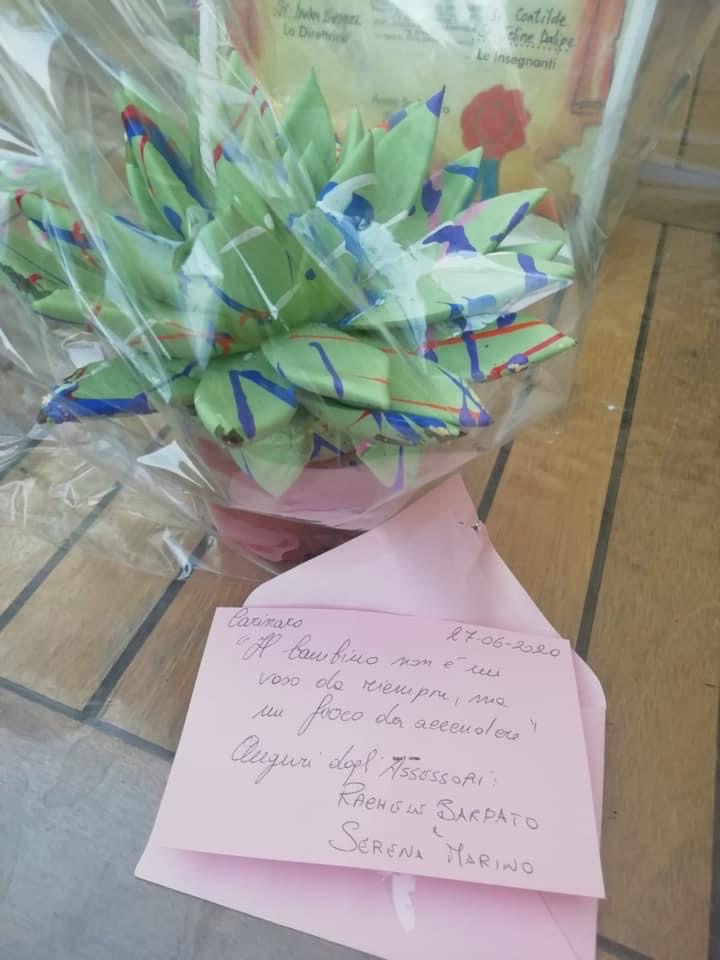 La Direttrice
Contilde
Le Insegnanti
Carinaro
27-06-2020
"Il bambino non è un
vaso da riempire, ma
un fuoco da accendere"
Auguri dagli ASSESSORI:
RACHELE BARPATO
e
SERENA MARINO